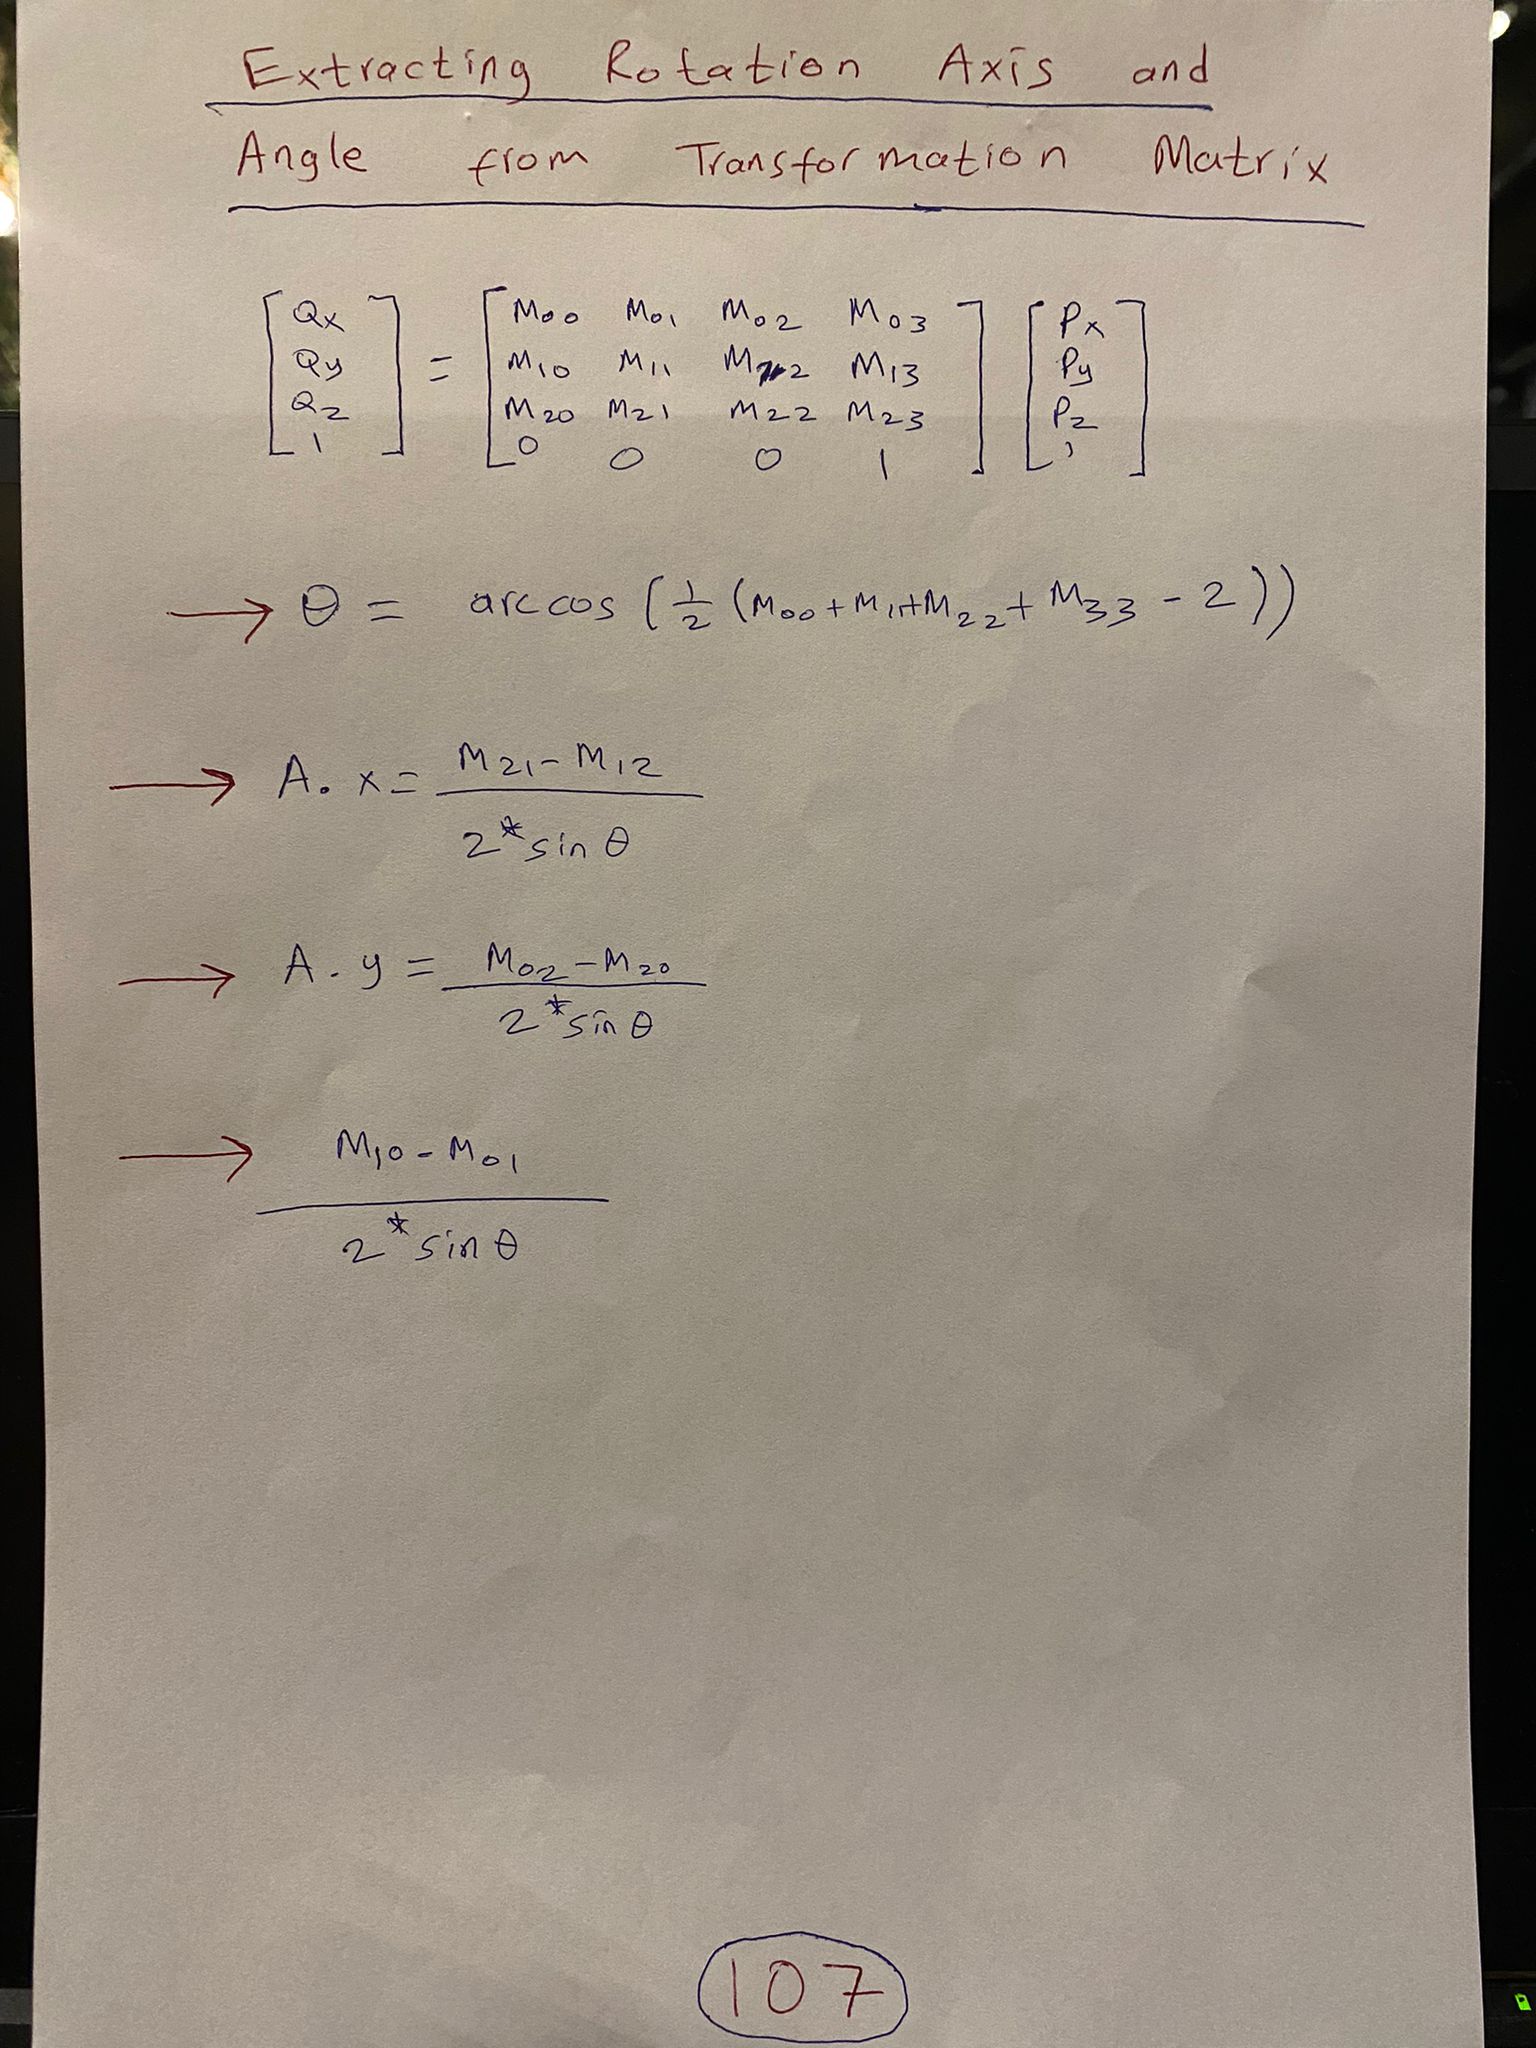 Extracting Rotation Axis and
Angle from Transformation Matrix
[Qx Qy Qz 1] = [M00 M01 M02 M03
M10 M11 M12 M13
M20 M21 M22 M23
0 0 0 1] [Px Py Pz 1]
→ θ = arccos (1/2 (M00+M11+M22+M33-2))
→ A.x = M21-M12 / 2*sin θ
→ A.y = M02-M20 / 2*sin θ
→ M10-M01 / 2*sin θ
107